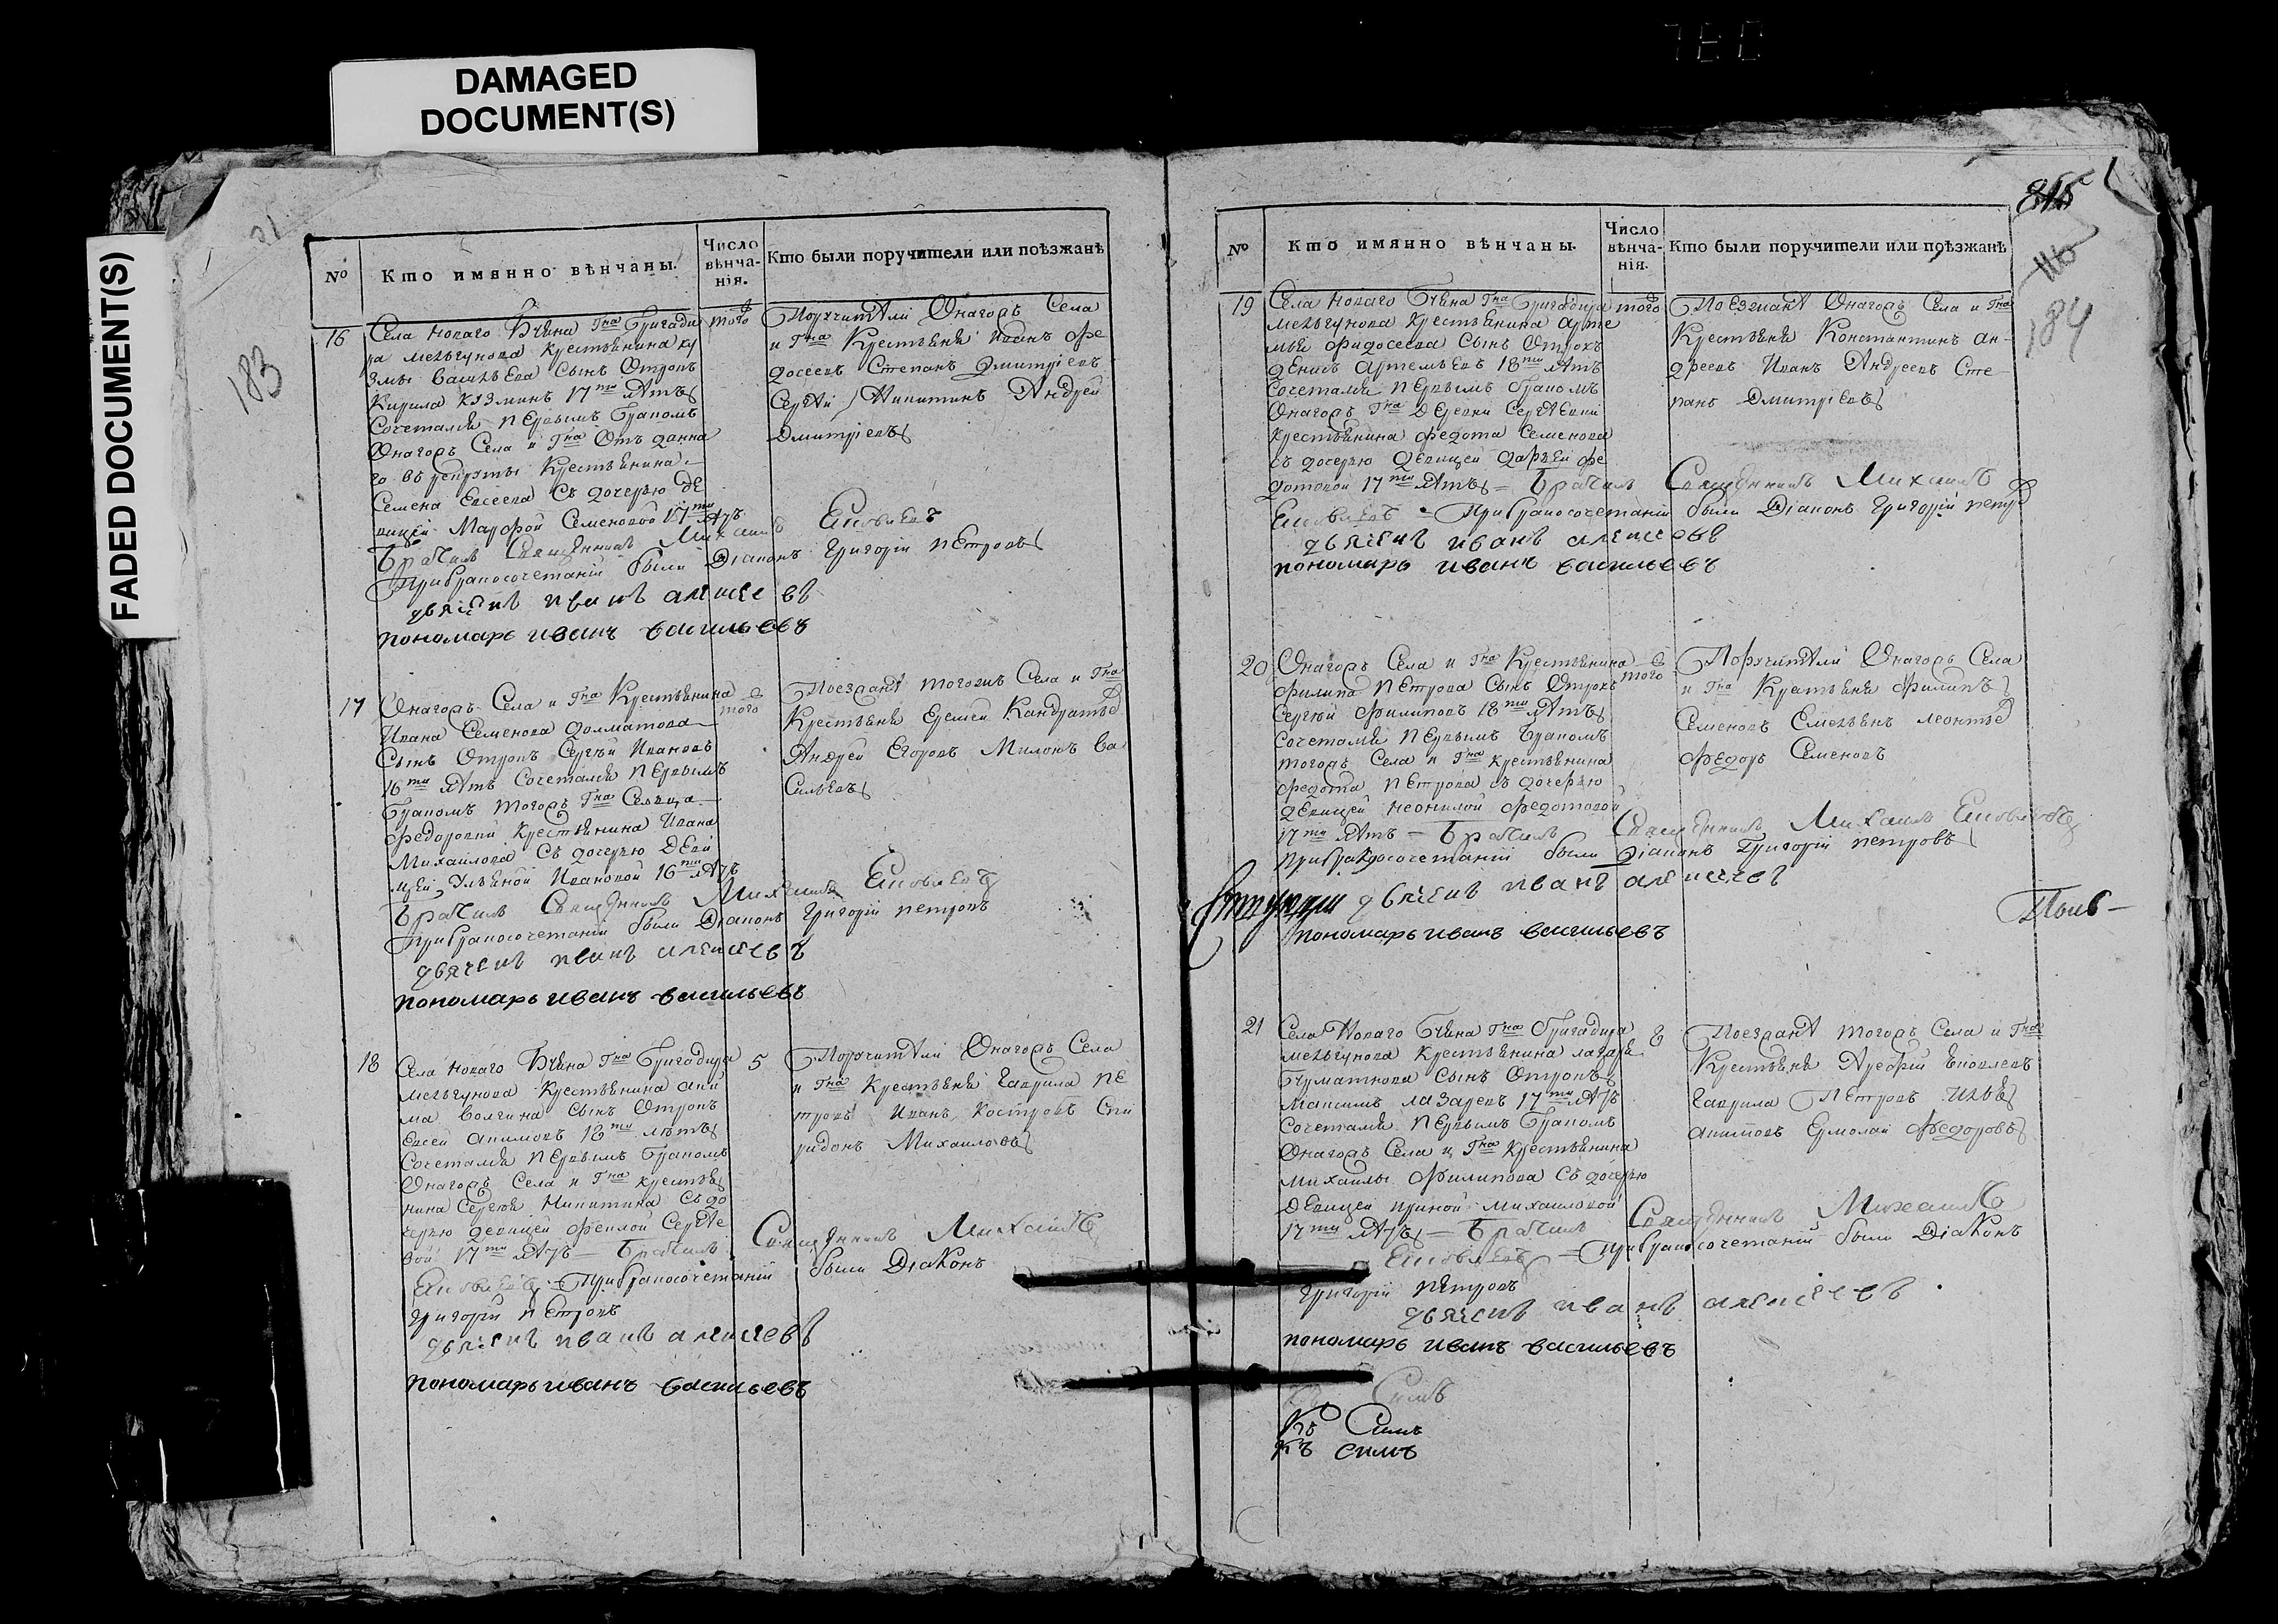 DAMAGED
DOCUMENT(S)
FADED DOCUMENT(S)
183
21
№
Кто имянно вѣнчаны.
Число
вѣнча-
нія.
Кто были поручители или поѣзжанѣ
16
Села новаго
Гна Бригади
ра мельгунова крестьянина ку
змы васильева сынъ Отрокъ
Кирила кузминъ 17ти лѣтъ
Сочетался первымъ бракомъ
Онагожъ Села и Гна Отъ данна
го въ рекруты крестьянина
Семена Евсеева Съ дочерью де
вицей Марфой Семеновой 17ти лѣтъ
того
Поручители Онагожъ Села
и Гна Крестьяне Иванъ Фе
досеевъ Степанъ Дмитріевъ
Сергѣй Никитинъ Андрей
Дмитріевъ
Священникъ Михаилъ Яковлевъ
При бракосочетаніи были Діаконъ Григорій Петровъ
дьячекъ иванъ алексеевъ
пономарь иванъ васильевъ
17
Онагожъ Села и Гна Крестьянина
Ивана Семенова долматова
Сынъ Отрокъ Сергѣй Ивановъ
16ти лѣтъ Сочетался первымъ
бракомъ тогожъ Гна Сельца
Федоровки крестьянина Ивана
Михаилова Съ дочерью деви
цей Ульяной Ивановой 16ти лѣтъ
того
Поезжанѣ тогожъ Села и Гна
Крестьяне Еремей Кандратьев
Андрей Егоровъ Милонъ Ва
сильевъ
Священникъ Михаилъ Яковлевъ
При бракосочетаніи были Діаконъ Григорій петровъ
дьячекъ иванъ алексеевъ
пономарь иванъ васильевъ
18
Села новаго
Гна Бригадира
мельгунова крестьянина аки
ма волгина сынъ Отрокъ
Евсей акимовъ 18ти лѣтъ
Сочетался первымъ бракомъ
Онагожъ Села и Гна крестья
нина Сергея Никитина Съ до
черью девицей феклой Сергѣе
вой 17ти лѣтъ
5
Поручители Онагожъ Села
и Гна Крестьяне Гаврила Пе
тровъ Иванъ Костровъ Спи
ридонъ Михаиловъ
Священникъ Михаилъ
Яковлевъ При бракосочетаніи были Діаконъ
Григорій Петровъ
дьячекъ иванъ алексеевъ
пономарь иванъ васильевъ
815
116
184
№
Кто имянно вѣнчаны.
Число
вѣнча-
нія.
Кто были поручители или поѣзжанѣ
19
Села новаго
Гна Бригадира
мельгунова крестьянина арте
мья федосеева сынъ Отрокъ
денисъ артемьевъ 18ти лѣтъ
Сочетался первымъ бракомъ
Онагожъ Гна деревни Сергѣевки
крестьянина федота Семенова
съ дочерью девицей дарьей фе
дотовой 17ти лѣтъ
того
Поезжанѣ Онагожъ Села и Гна
Крестьяне Константинъ Ан-
дреевъ Иванъ Андреевъ Сте-
панъ Дмитріевъ
Священникъ Михаилъ
Яковлевъ При бракосочетаніи были Діаконъ Григорій петров
дьячекъ иванъ алексеевъ
пономарь иванъ васильевъ
20
Онагожъ Села и Гна Крестьянина
филипа Петрова Сынъ Отрокъ
Сергѣй Филиповъ 18ти лѣтъ
Сочетался первымъ бракомъ
тогожъ Села и Гна крестьянина
федота Петрова съ дочерью
девицей неонилой федотовой
17ти лѣтъ
того
Поручители Онагожъ Села
и Гна Крестьяне Филипъ
Семеновъ Емельянъ леонтьев
Федоръ Семеновъ
Священникъ Михаилъ Яковлевъ
При бракосочетаніи были Діаконъ Григорій петровъ
дьячекъ иванъ алексеевъ
пономарь иванъ васильевъ
21
Села Новаго
Гна бригадира
мельгунова крестьянина лазаря
сынъ Отрокъ
Максимъ лазаревъ 17ти лѣтъ
Сочетался первымъ бракомъ
Онагожъ Села и Гна крестьянина
михаилы Филипова Съ дочерью
девицей ириной михаиловой
17ти лѣтъ
Поезжанѣ тогожъ Села и Гна
Крестьяне Яковлевъ
Гаврила Петровъ
Ермолай Федоровъ
Священникъ Михаилъ
Яковлевъ При бракосочетаніи были Діаконъ
Григорій Петровъ
дьячекъ иванъ алексеевъ
пономарь иванъ васильевъ